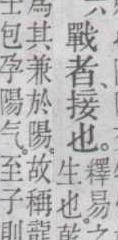 戰者、接也。
釋易之
生也。
爲其兼於陽。故稱龍
包孕陽气。至子則